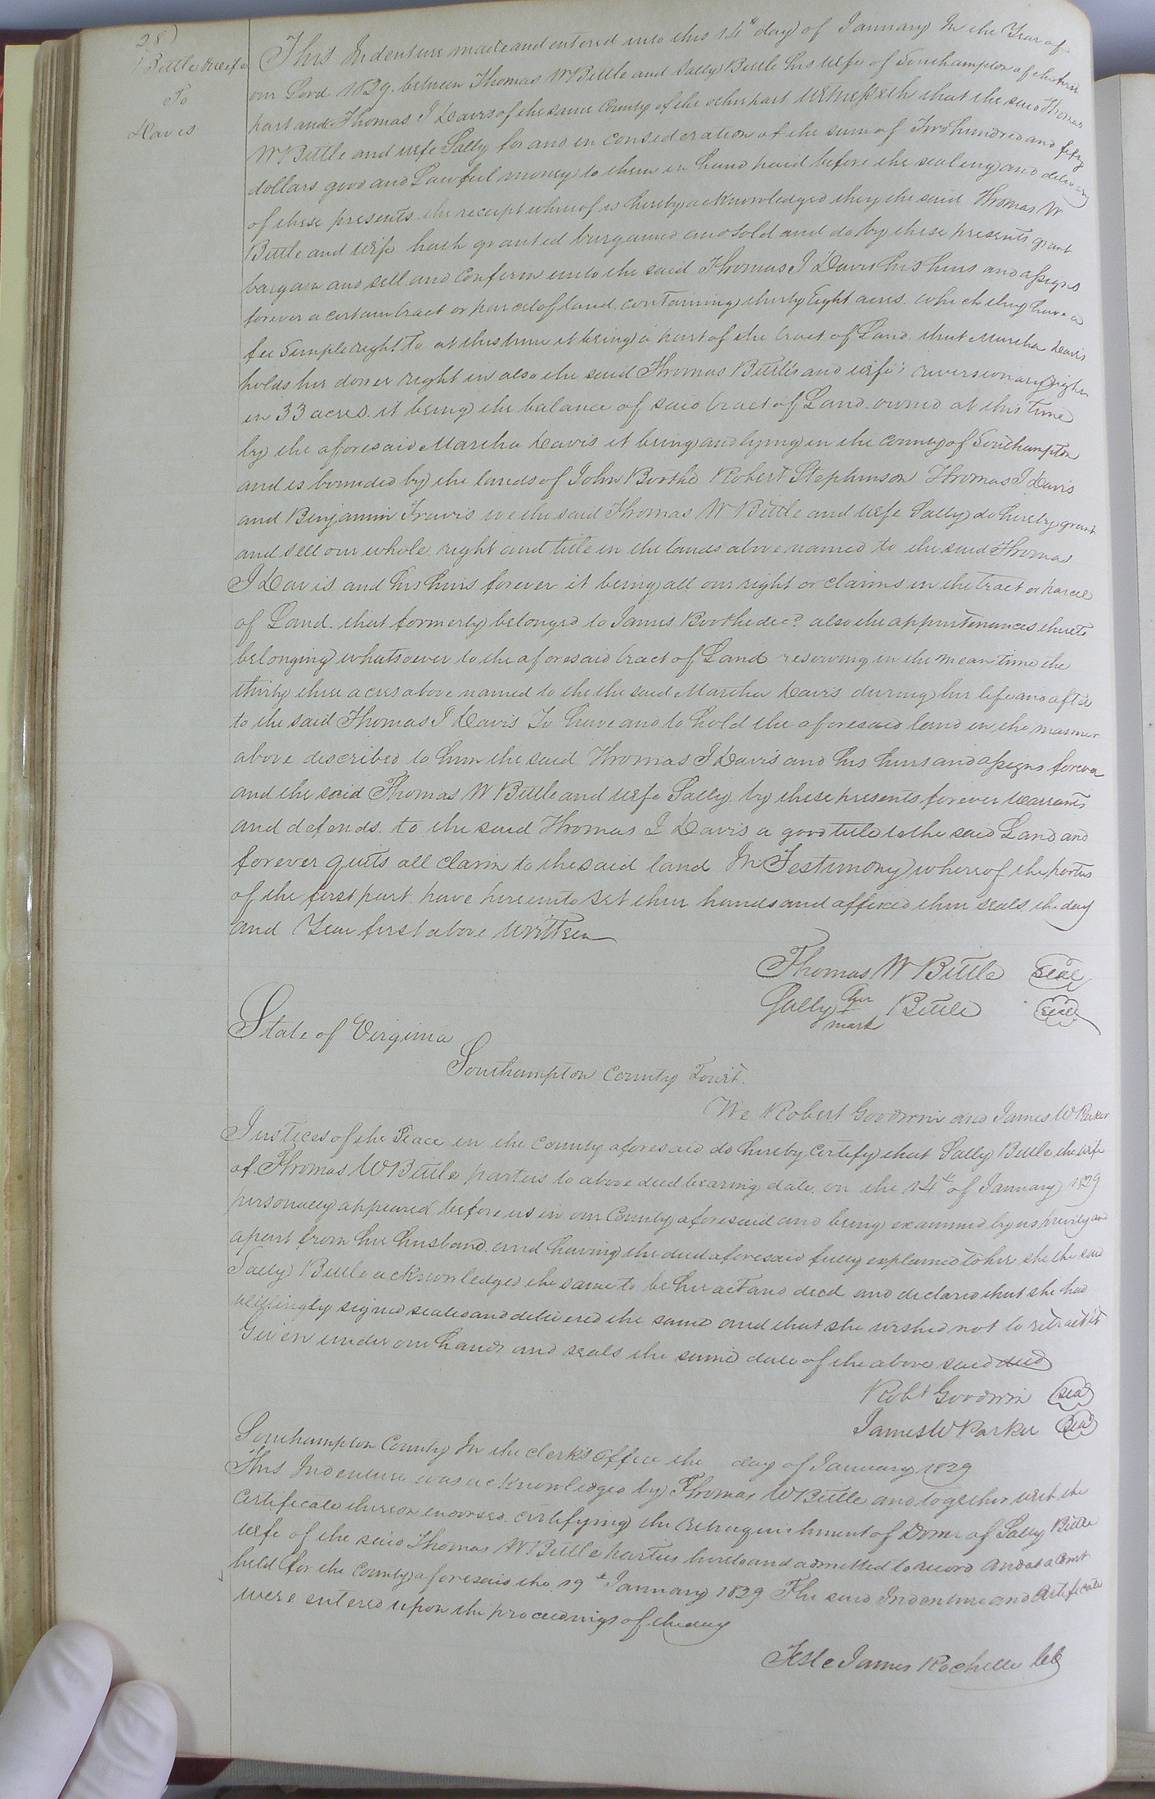 28)
Bittle & wife
To
Davis
This Indenture made and entered into this 14th day of January In the Year of
our Lord 1829. between Thomas W Bittle and Sally Bittle his wife of Southampton of the first
part and Thomas J Davis of the same County of the other part Witnesseth that the said Thomas
W. Bittle and wife Sally for and in consideration of the sum of Two hundred and fifty
dollars good and Lawful money to them in hand paid before the sealing and delivery
of these presents the receipt whereof is hereby acknowledged they the said Thomas W
Bittle and wife hath granted bargained and sold and do by these presents grant
bargain and sell and confirm unto the said Thomas J Davis his heirs and assigns
forever a certain tract or parcel of land containing thirty Eight acres which they have a
fee Simple right to at this time it being a part of the tract of Land that Martha Davis
holds her dower right in also the said Thomas Bittle's and wife's reversionary right
in 33 acres it being the balance of said tract of Land owned at this time
by the aforesaid Martha Davis it being and lying in the County of Southampton
and is bounded by the lands of John Boothe Robert Stephenson Thomas J Davis
and Benjamin Travis we the said Thomas W Bittle and wife Sally do hereby grant
and sell our whole right and title in the lands above named to the said Thomas
J Davis and his heirs forever it being all our right or claims in the tract or parcel
of Land that formerly belonged to James Boothe decd also the appurtenances thereto
belonging whatsoever to the aforesaid tract of Land reserving in the mean time the
thirty three acres above named to the the said Martha Davis during her life and after
to the said Thomas J Davis To have and to hold the aforesaid land in the manner
above described to him the said Thomas J Davis and his heirs and assigns forever
and the said Thomas W Bittle and wife Sally by these presents forever warrants
and defends to the said Thomas J Davis a good title to the said Land and
forever quits all claim to the said land In Testimony whereof the parties
of the first part have hereunto set their hands and affixed their seals the day
and Year first above written
Thomas W Bittle seal
Sally her + mark Bittle seal
State of Virginia
Southampton County Court.
We Robert Goodwin and James W Parker
Justices of the Peace in the County aforesaid do hereby certify that Sally Bittle the wife
of Thomas W Bittle parties to above deed bearing date on the 14th of January 1829
personally appeared before us in our County aforesaid and being examined by us privily and
apart from her husband and having the deed aforesaid fully explained to her she the said
Sally Bittle acknowledged the same to be her act and deed and declared that she had
willingly signed sealed and delivered the same and that she wished not to retract it
Given under our hands and seals the same date of the above said deed
Robt Goodwin seal
James W Parker seal
Southampton County In the Clerk's office the day of January 1829
This Indenture was acknowledged by Thomas W Bittle and together with the
Certificate thereon endorsed certifying the relinquishment of Dower of Sally Bittle
wife of the said Thomas W Bittle parties hereto and admitted to record And at a Court
held for the County aforesaid the 19th January 1829 The said Indenture and certificate
were entered upon the proceedings of the day
Teste James Rochelle Clk